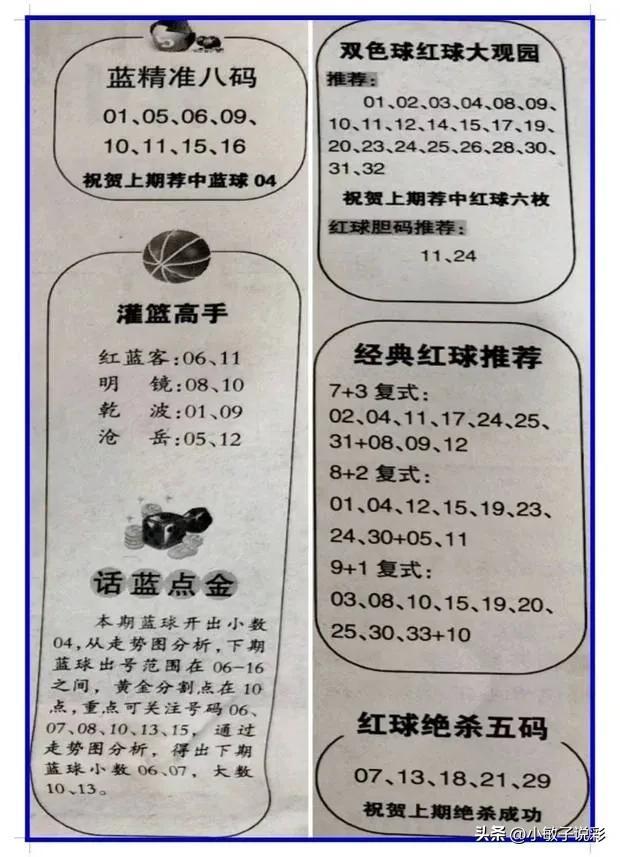 蓝精准八码
01、05、06、09、
10、11、15、16
祝贺上期荐中蓝球 04
灌篮高手
红蓝客:06、11
明 镜:08、10
乾 波:01、09
沧 岳:05、12
话蓝点金
本期蓝球开出小数
04,从走势图分析,下期
蓝球出号范围在 06-16
之间，黄金分割点在 10
点,重点可关注号码 06、
07、08、10、13、15，通过
走势图分析，得出下期
蓝球小数 06、07，大数
10、13。
双色球红球大观园
推荐:
01、02、03、04、08、09、
10、11、12、14、15、17、19、
20、23、24、25、26、28、30、
31、32
祝贺上期荐中红球六枚
红球胆码推荐:
11、24
经典红球推荐
7+3 复式:
02、04、11、17、24、25、
31+08、09、12
8+2 复式:
01、04、12、15、19、23、
24、30+05、11
9+1 复式:
03、08、10、15、19、20、
25、30、33+10
红球绝杀五码
07、13、18、21、29
祝贺上期绝杀成功
头条 @小敏子说彩